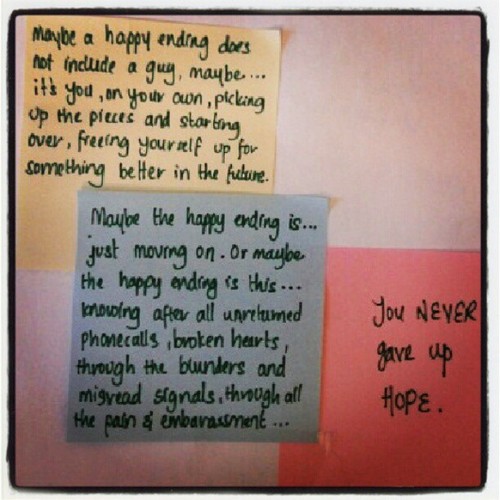 Maybe a happy ending does
not include a guy, maybe...
it's you, on your own, picking
up the pieces and starting
over, freeing yourself up for
something better in the future.
Maybe the happy ending is...
just moving on. Or maybe
the happy ending is this...
knowing after all unreturned
phonecalls, broken hearts,
through the blunders and
misread signals, through all
the pain & embarassment...
You NEVER
gave up
HOPE.